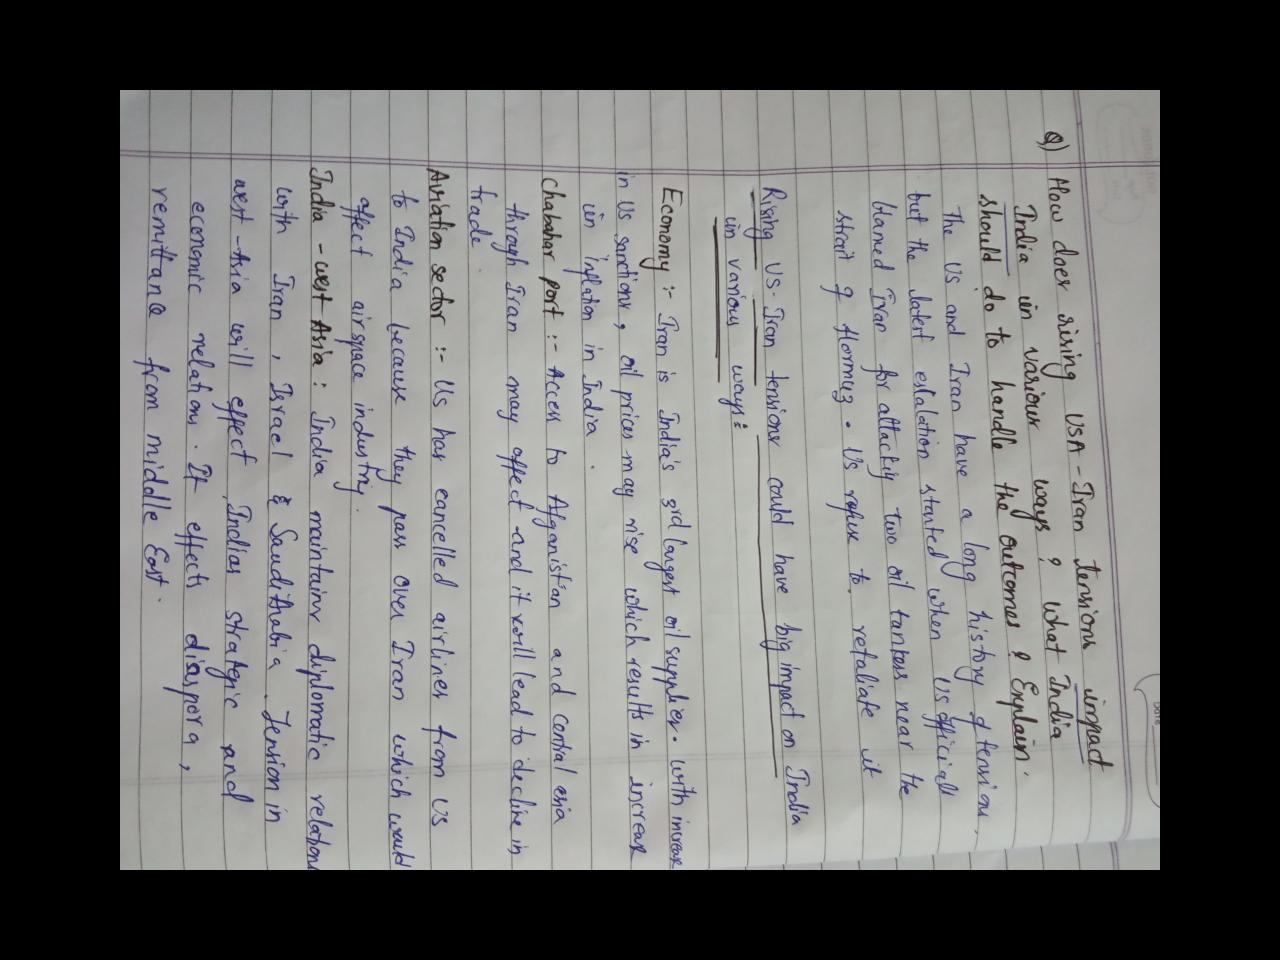 Q) How does rising USA-Iran tensions impact
India in various ways? what India
should do to handle the outcomes? Explain.
The US and Iran have a long history of tensions,
but the latest escalation started when US officials
blamed Iran for attacking two oil tankers near the
strait of Hormuz. US refuse to retaliate it
Rising US-Iran tensions could have big impact on India
in various ways:
Economy :- Iran is India's 3rd largest oil supplier. with increase
in US sanctions, oil prices may rise which results in increase
in inflation in India.
Chabahar port :- Access to Afganistan and Central asia
through Iran may affect and it will lead to decline in
trade.
Aviation sector :- US has cancelled airlines from US
to India because they pass over Iran which would
affect airspace industry.
India - west Asia : India maintains diplomatic relations
with Iran, Israel & SaudiArabia. Tension in
west-Asia will effect Indias strategic and
economic relations. It effects diaspora,
remittance from middle East.
Date